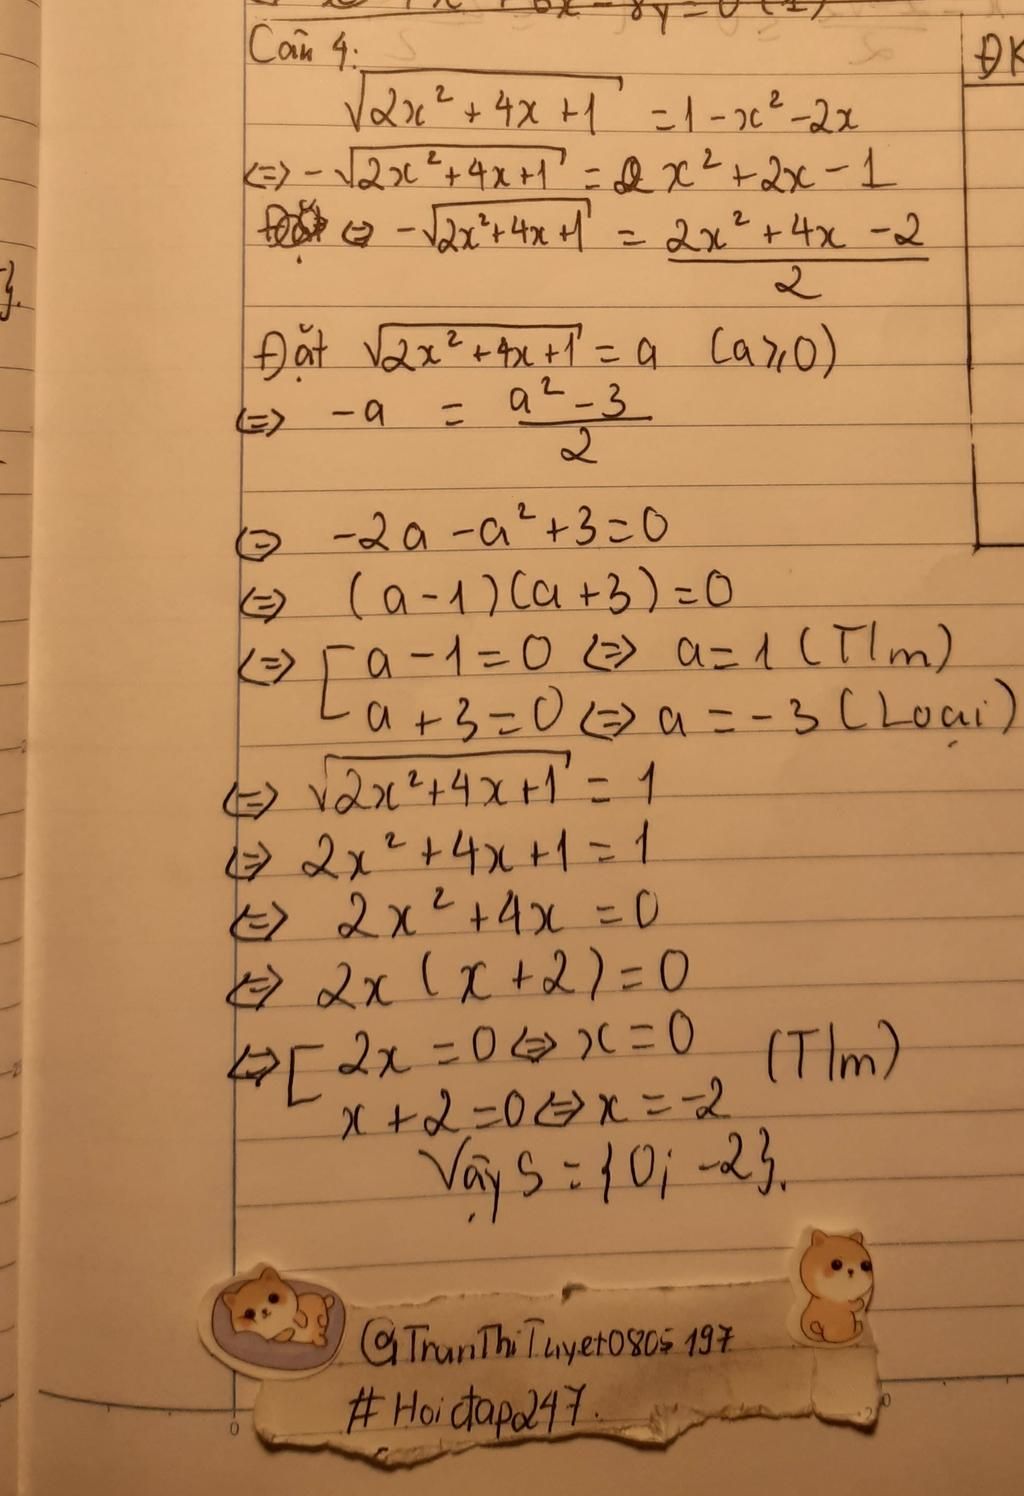 Câu 4:
ĐK
√(2x² + 4x + 1) = 1 - x² - 2x
⇔ -√(2x² + 4x + 1) = x² + 2x - 1
⇔ -√(2x² + 4x + 1) = (2x² + 4x - 2)/2
Đặt √(2x² + 4x + 1) = a (a ⩾ 0)
⇔ -a = (a² - 3)/2
⇔ -2a - a² + 3 = 0
⇔ (a - 1)(a + 3) = 0
⇔ [ a - 1 = 0 ⇔ a = 1 (T/m)
a + 3 = 0 ⇔ a = -3 (Loại)
⇔ √(2x² + 4x + 1) = 1
⇔ 2x² + 4x + 1 = 1
⇔ 2x² + 4x = 0
⇔ 2x (x + 2) = 0
⇔ [ 2x = 0 ⇔ x = 0 (T/m)
x + 2 = 0 ⇔ x = -2
Vậy S = {0; -2}.
@TranThiTuyet0805197
#Hoidap247.
0